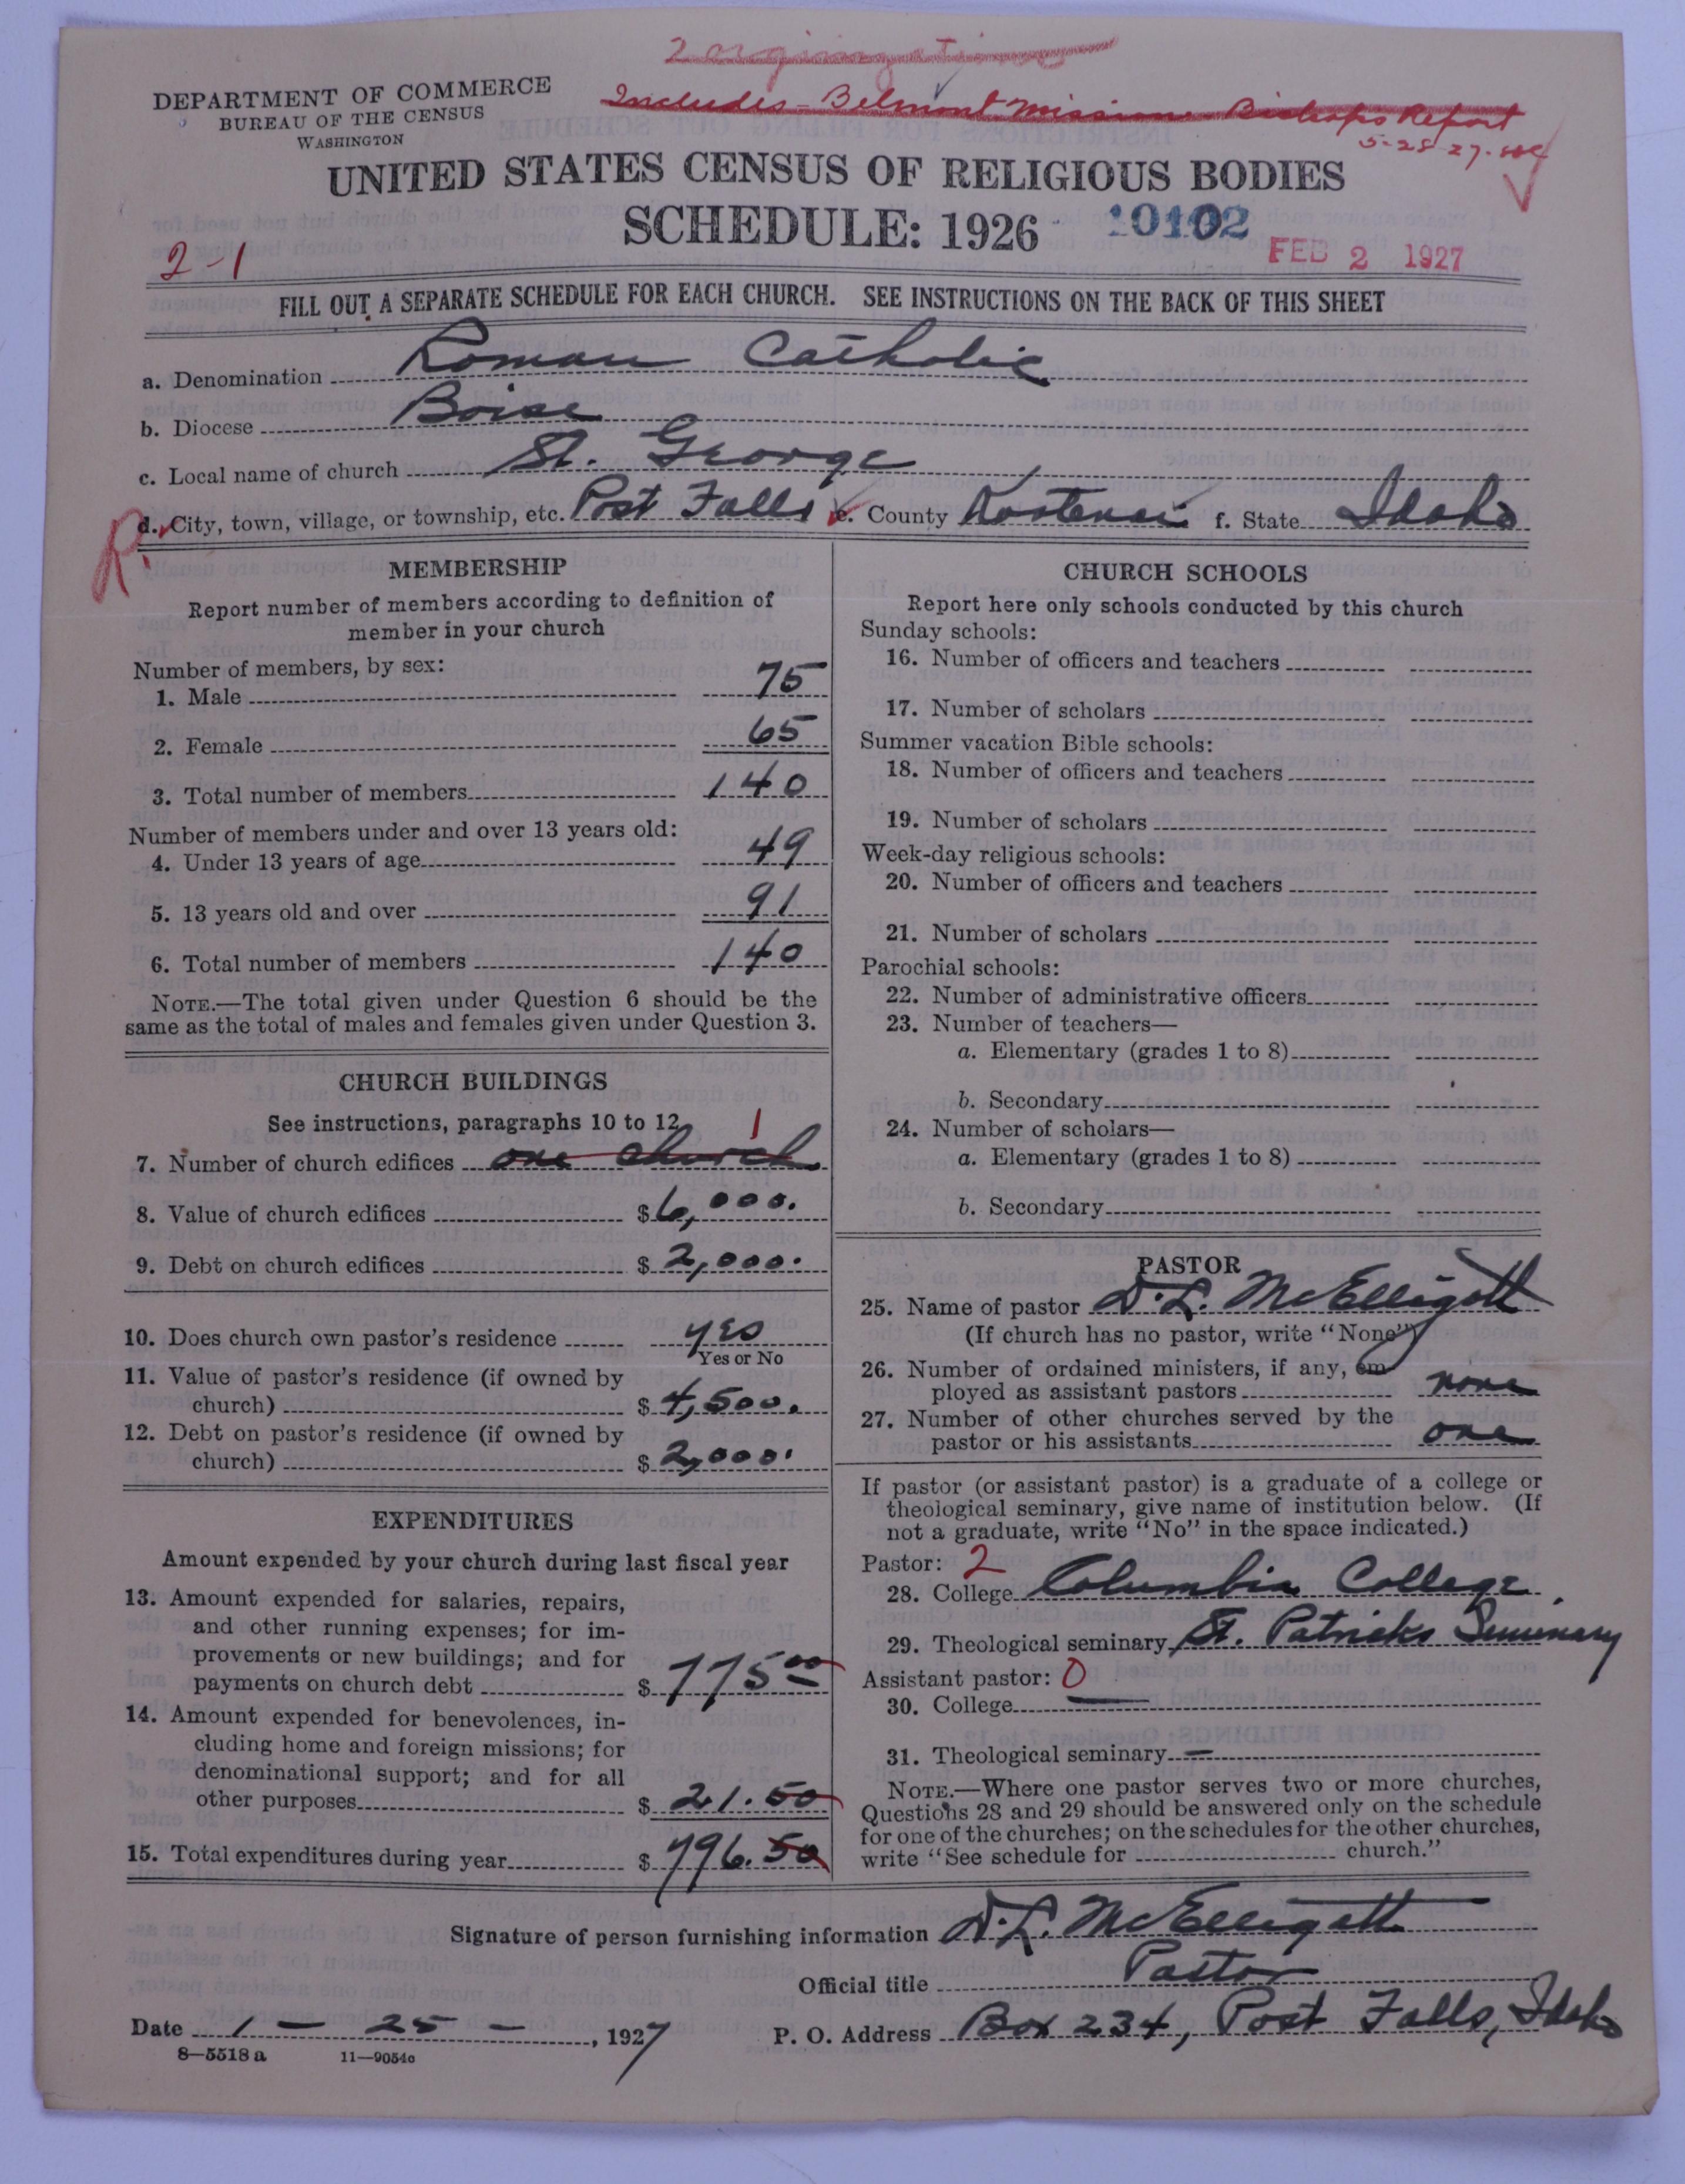 2 organizations
Includes - Belmont Mission - Bishop's Report
5-28-27.
DEPARTMENT OF COMMERCE
BUREAU OF THE CENSUS
WASHINGTON
UNITED STATES CENSUS OF RELIGIOUS BODIES
SCHEDULE: 1926 10102
FEB 2 1927
2-1
FILL OUT A SEPARATE SCHEDULE FOR EACH CHURCH. SEE INSTRUCTIONS ON THE BACK OF THIS SHEET
a. Denomination Roman Catholic
b. Diocese Boise
c. Local name of church St. George
d. City, town, village, or township, etc. Post Falls e. County Kootenai f. State Idaho
R.
MEMBERSHIP
Report number of members according to definition of
member in your church
Number of members, by sex:
1. Male 75
2. Female 65
3. Total number of members 140
Number of members under and over 13 years old:
4. Under 13 years of age 49
5. 13 years old and over 91
6. Total number of members 140
NOTE.—The total given under Question 6 should be the
same as the total of males and females given under Question 3.
CHURCH BUILDINGS
See instructions, paragraphs 10 to 12
1
7. Number of church edifices one church
8. Value of church edifices $6,000.
9. Debt on church edifices $2,000.
10. Does church own pastor's residence yes
Yes or No
11. Value of pastor's residence (if owned by
church) $4,500.
12. Debt on pastor's residence (if owned by
church) $2,000.
EXPENDITURES
Amount expended by your church during last fiscal year
13. Amount expended for salaries, repairs,
and other running expenses; for im-
provements or new buildings; and for
payments on church debt $775 00
14. Amount expended for benevolences, in-
cluding home and foreign missions; for
denominational support; and for all
other purposes $21.50
15. Total expenditures during year $796.50
CHURCH SCHOOLS
Report here only schools conducted by this church
Sunday schools:
16. Number of officers and teachers
17. Number of scholars
Summer vacation Bible schools:
18. Number of officers and teachers
19. Number of scholars
Week-day religious schools:
20. Number of officers and teachers
21. Number of scholars
Parochial schools:
22. Number of administrative officers
23. Number of teachers—
a. Elementary (grades 1 to 8)
b. Secondary
24. Number of scholars—
a. Elementary (grades 1 to 8)
b. Secondary
PASTOR
25. Name of pastor D.L. McElligott
(If church has no pastor, write "None")
26. Number of ordained ministers, if any, em-
ployed as assistant pastors none
27. Number of other churches served by the
pastor or his assistants one
If pastor (or assistant pastor) is a graduate of a college or
theological seminary, give name of institution below. (If
not a graduate, write "No" in the space indicated.)
Pastor: 2
28. College Columbia College
29. Theological seminary St. Patricks Seminary
Assistant pastor: 0
30. College —
31. Theological seminary —
NOTE.—Where one pastor serves two or more churches,
Questions 28 and 29 should be answered only on the schedule
for one of the churches; on the schedules for the other churches,
write "See schedule for church."
Signature of person furnishing information D.L. McElligott
Official title Pastor
Date 1 - 25 - , 1927 P. O. Address Box 234, Post Falls, Idaho
8—5518 a 11—9054c